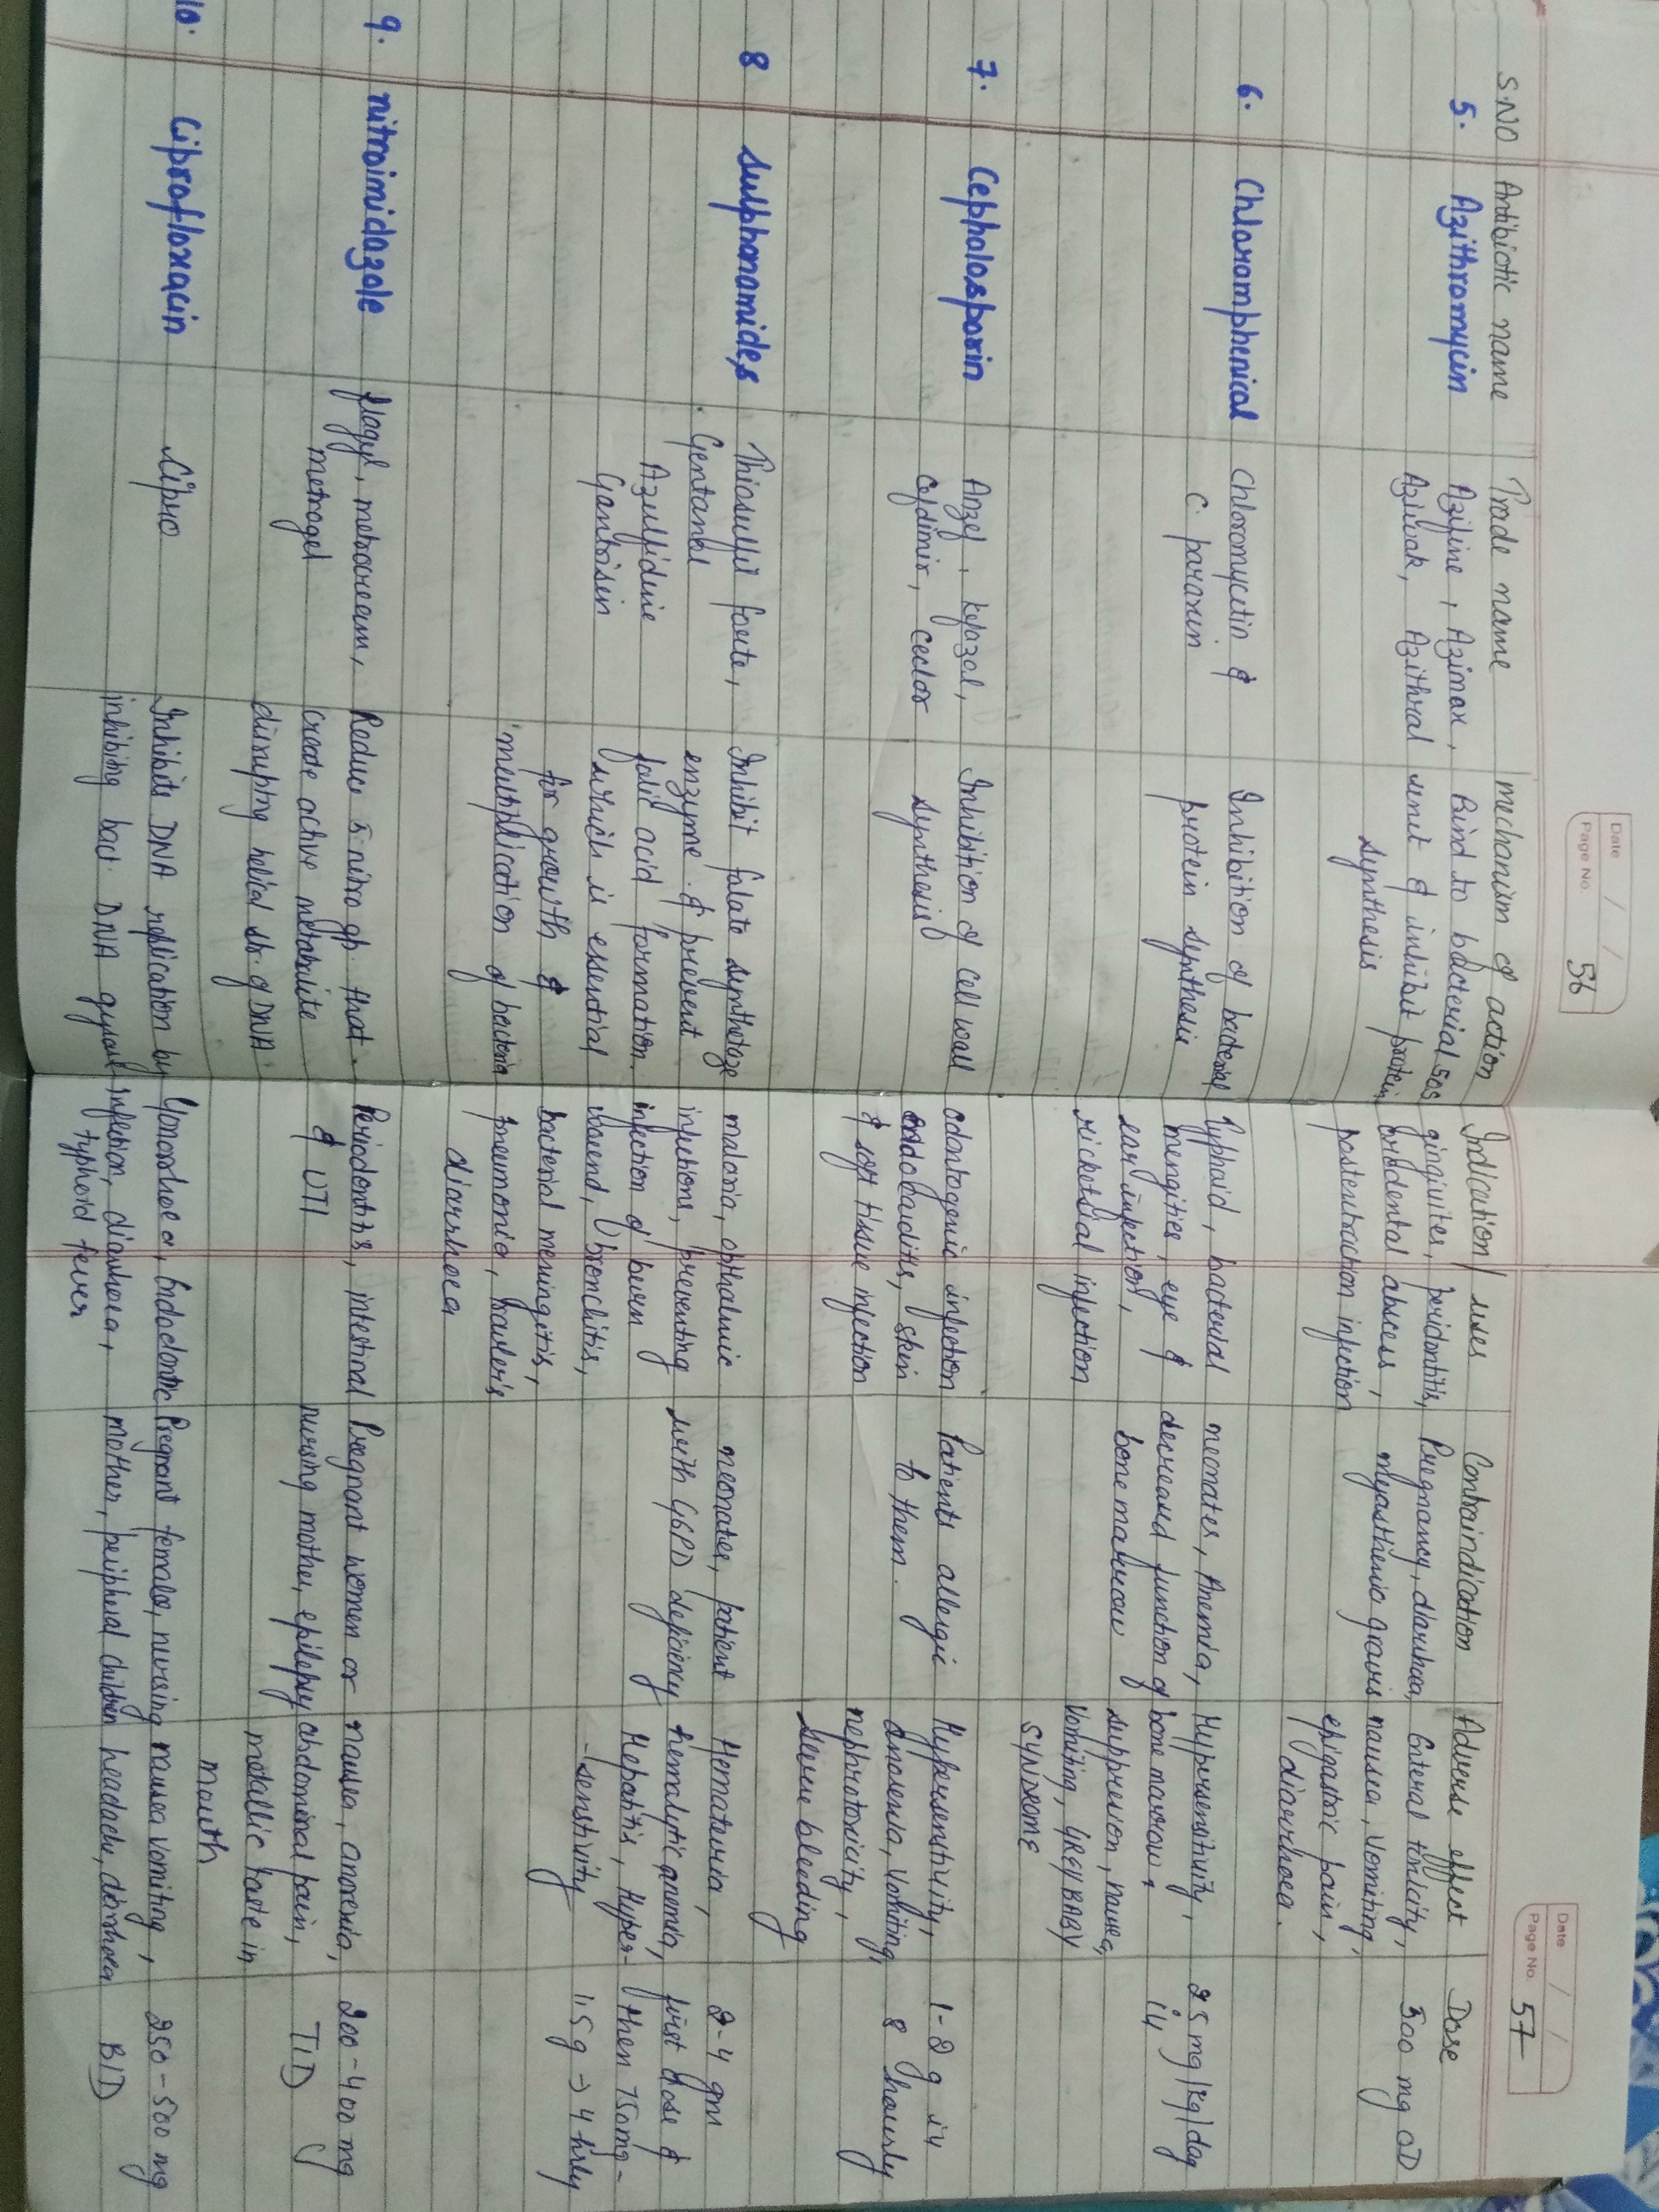 Date / /
Page No. 56
Date / /
Page No. 57
S.NO Antibiotic name Trade name mechanism of action Indication/uses Contraindication Adverse effect Dose
5. Azithromycin Aziline, Azimax, Bind to bacterial 50s gingivites, peridontitis, Pregnancy, diarrhoea, Enteral toxicity, 500 mg OD
Aziwak, Azithral unit & inhibit protein peridental abscess, myasthenia gravis nausea, vomiting,
synthesis postextraction infection epigastric pain,
diarrhoea.
6. Chloramphenical Chloromycetin & Inhibition of bacterial Typhoid, bacterial neonates, Anemia, Hypersensitivity, 25 mg/kg/day
C. paraxin protein synthesis mengities, eye & decreased function of bone marrow i4
ear infection, bone marrow suppression, nausea,
ricketsial infection vomiting, GREY BABY
SYNDROME
7. Cephalosporin Anzef, kefazol, Inhibition of cell wall odontogenic infection Patients allergic Hypersensitivity, 1-2 g i4
Cefdinir, ceclor synthesis endocarditis, skin to them. anorexia, vomiting, 8 hourly
& soft tissue infection nephrotoxicity,
severe bleeding
8 Sulphonamides Thiosulfil forte, Inhibit folate synthetaze malaria, opthalmic neonates, patient Hematuria, 2-4 gm
Gentanol enzyme & prevent infections, preventing with G6PD deficiency hemolytic anemia, first dose &
Azulfidine folic acid formation. infection of burn Hepatitis, Hyper- then 750mg-
Gantrisin which is essential wound, bronchitis, -senstivity 1.5g → 4 hrly
for growth & bacterial meningitis,
multiplication of bacteria pneumonia,
diarrhoea
9. nitroimidazole flagyl, metrocream, Reduce 5-nitro gp. that Periodontitis, intestinal Pregnant women or nausea, anorexia, 200-400 mg
metrogel create active metabulite & UTI nursing mother, epilepsy abdominal pain, TID
disrupting helical str. of DNA. metallic taste in
mouth
10. Ciprofloxacin Cipro Inhibits DNA replication by Gonorrhoea, Endodontic Pregnant females, nursing nausea vomiting, 250-500 mg
inhibiting bact. DNA infection, diarrhoea, mother, peripheral children headache, diarrhoea BID
typhoid fever